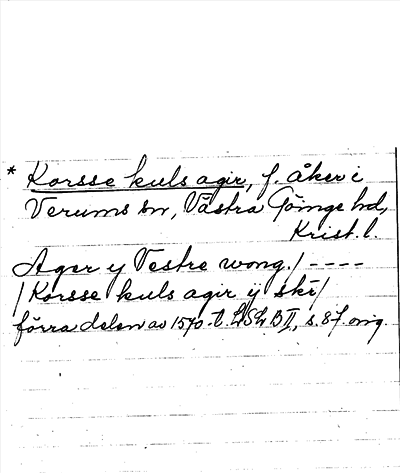 * Korsse kuls agir, f. åker i
Verums sn, Västra Göinge hd,
Krist. l.
Ager y Vestre wong./ ----
/Korsse kuls agir ij skr/
förra delen av 1570-t. LSLB II, s. 87. orig.